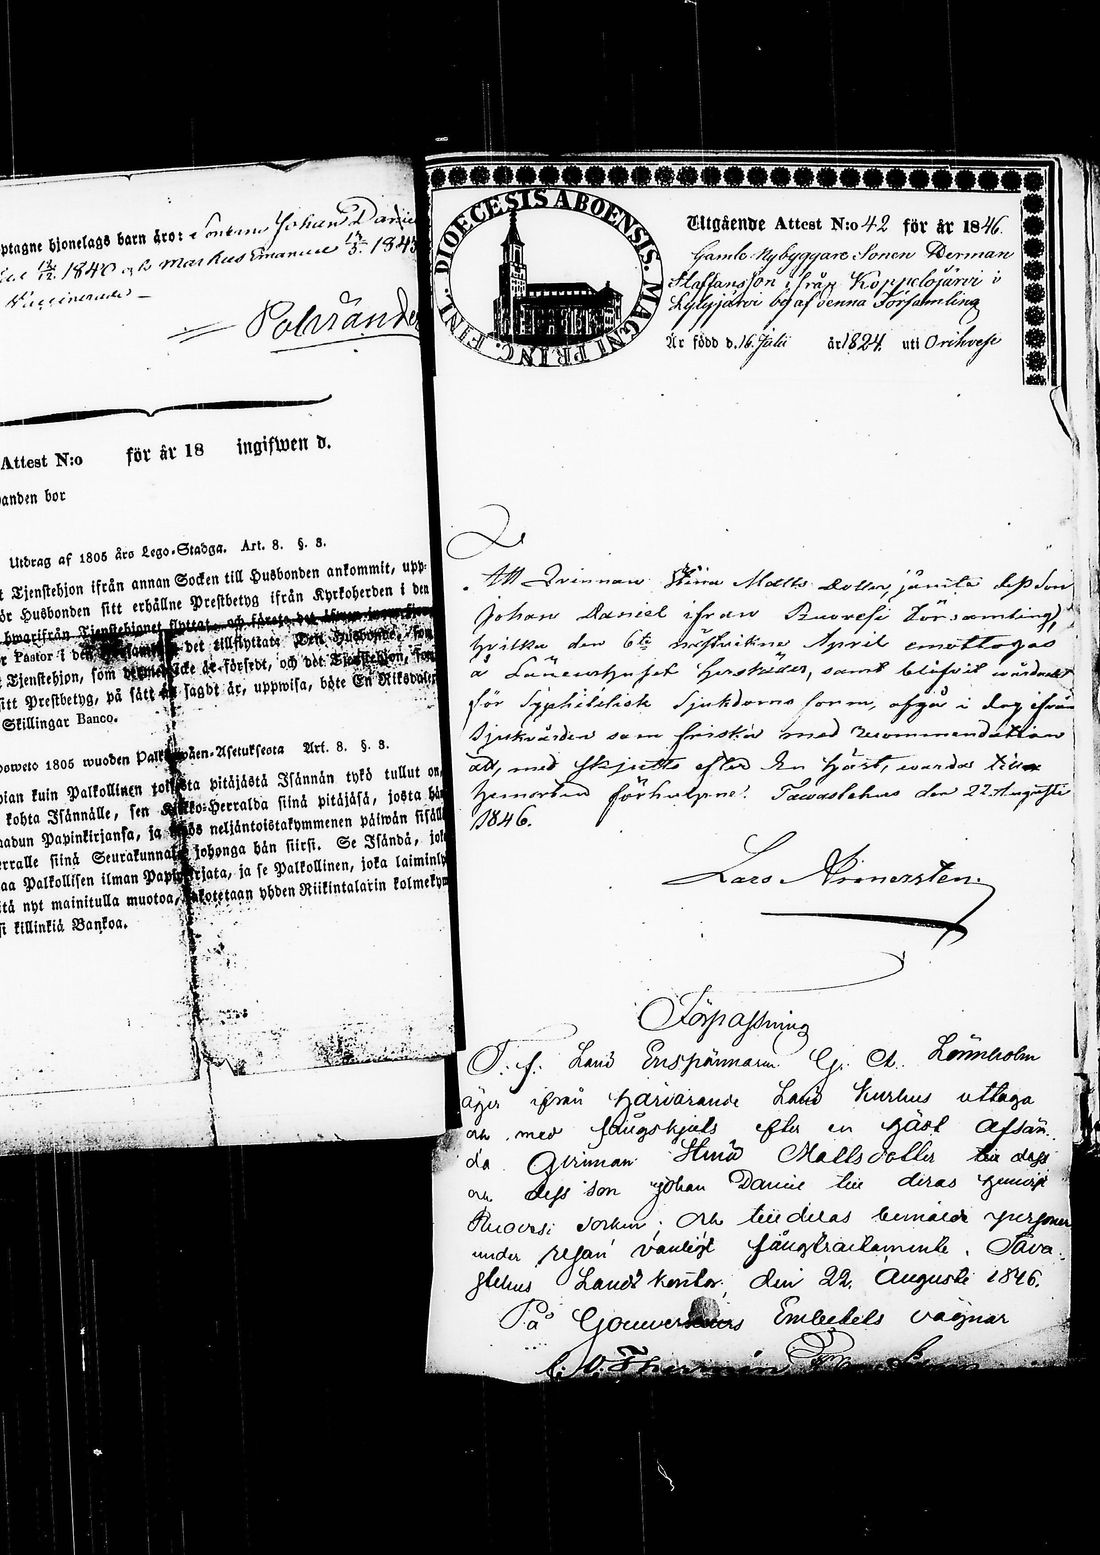 ptagne hjonelags barn äro: Sonerna Johan Daniel
1840 och Markus Emanuel 1843
Vaccinerade —
Polviander
Attest N:o för år 18 ingifwen d.
anden bor
Utdrag af 1805 års Lego-Stadga. Art. 8. §. 8.
t Tjenstehjon ifrån annan Socken till Husbonden ankommit, upp-
ör Husbonden sitt erhållne Prestbetyg ifrån Kyrkoherden i den
hwarifrån Tjenstehjonet flyttat, och förete det
r Pastor i den Församling det tillflyttat. Den Husbonde, som
t Tjenstehjon, som dermed icke är försedt, och det Tjenstehjon, som
sitt Prestbetyg, på sätt nu sagdt är, uppwisa, böte En Riksdaler
Skillingar Banco.
oweto 1805 wuoden Palkowäen-Asetuksesta Art. 8. §. 8.
ian kuin Palkollinen toisesta pitäjästä Isännän tykö tullut on,
kohta Isännälle, sen Kirkko-Herralda siinä pitäjäsä, josta hän
aadun Papinkirjansa, ja myös neljäntoistakymmenen päiwän sisällä
erralle siinä Seurakunnasa johonga hän siirsi. Se Isändä, joka
aa Palkollisen ilman Papinkirjata, ja se Palkollinen, joka laiminly
itä nyt mainitulla muotoa, sakotetaan yhden Riikintalarin kolmekym
si killinkiä Bankoa.
DIOECESIS ABOENSIS. MAGNI PRINC. FINL.
Utgående Attest N:o 42 för år 1846.
Gamle Nybyggare Sonen Herman
Staffansson ifrån Koppelojärvi i
Kylyjärvi by af denna Församling
Är född d. 16 Julii år 1824 uti Orihvesi
Att Qvinnan Stina Matts Dotter, jämte dess Son
Johan Daniel ifrån Ruovesi Församling,
hvilka den 6te nästvikne April emottogos
å Länelasarettet härstädes, samt blifvit vårdade
för Syphilitisk Sjukdoms form, afgå i dag ifrån
Sjukvården som friska med recommendation
att, med skjutts efter En häst, warda till
hemorten förhulpne. Tawastehus den 22 Augusti
1846.
Lars
Förpassning
T. f. Land Enspännaren G. A. Lönnholm
äger ifrån härvarande Land kurhus uttaga
och med fångskjuts efter en häst afsän-
da Qvinnan Stina Mattsdotter
och dess son Johan Daniel till deras hemvist
Ruovesi socken; och till deras bemälde personer
under resan vanligt fångtractamente. Tava-
stehus Landskontor, den 22. Augusti 1846.
På Gouverneurs Embetets vägnar